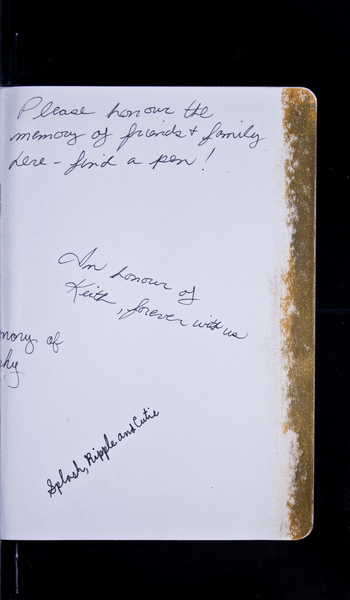 Please honour the
memory of friends + family
here - find a pen!
In honour of
Keith, forever with us
mory of
hy
Splash, Ripple and Cutie